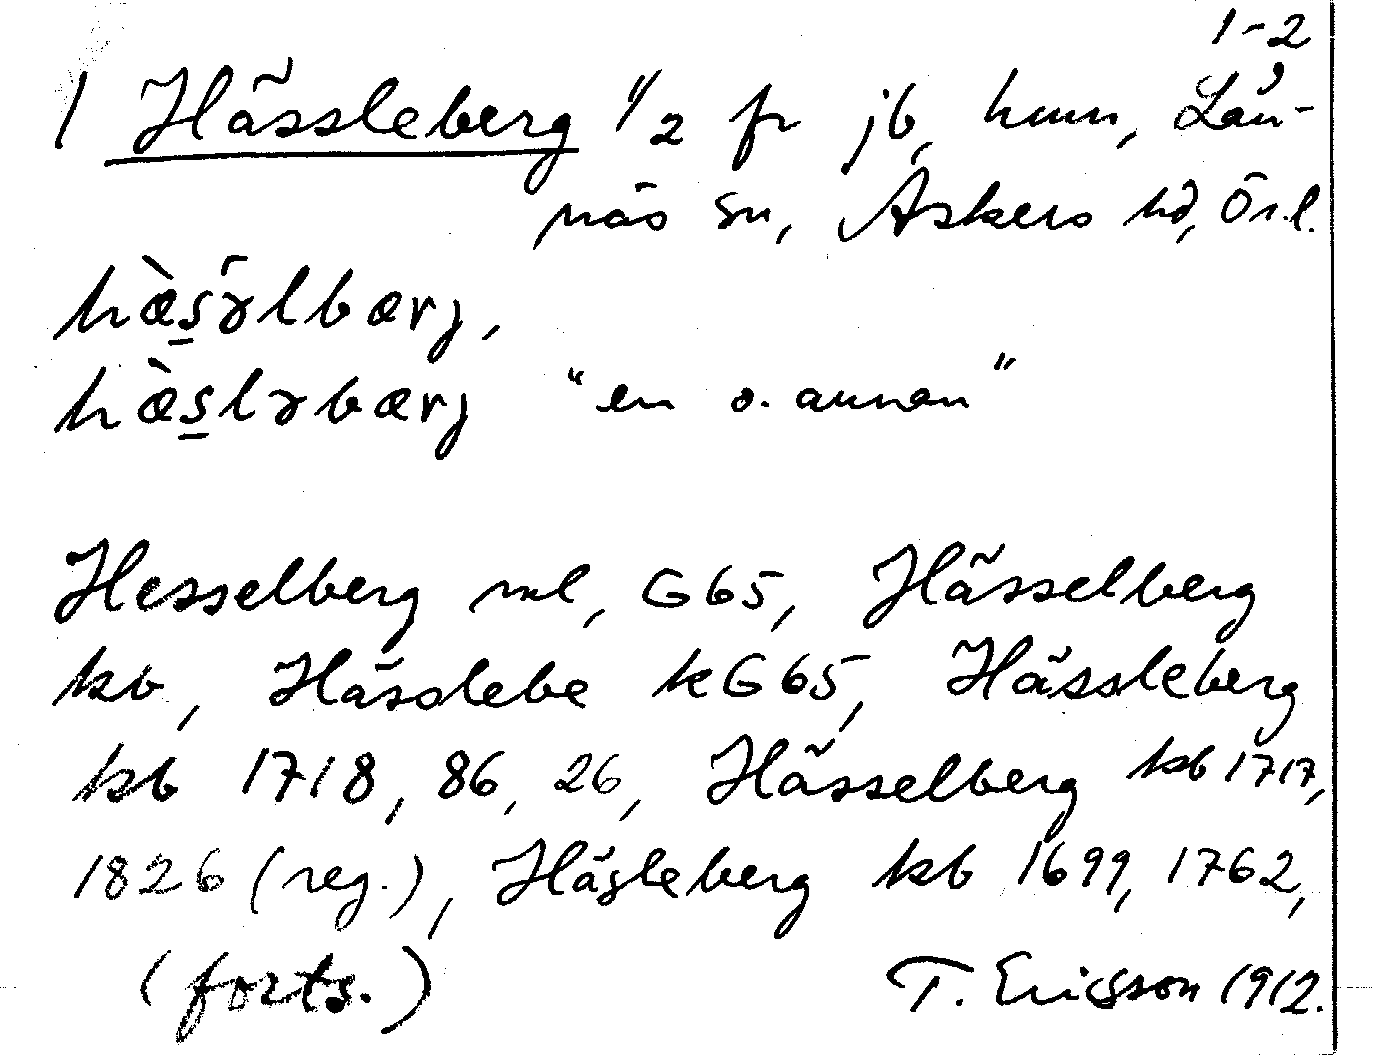 1-2
1 Hässleberg 1/2 fr jb, hmn, Län-
näs sn, Askers hd, Ör.l.
hæ̀s̱ɤlbærj,
hæ̀s̱lɤbærj "en o. annan"
Hesselberg ml, G65, Hässelberg
kb, Hässlebe kG65, Hässleberg
kb 1718, 86, 26, Hässelberg kb 1717,
1826 (reg.), Häsleberg kb 1699, 1762,
(forts.) T. Ericsson 1912.